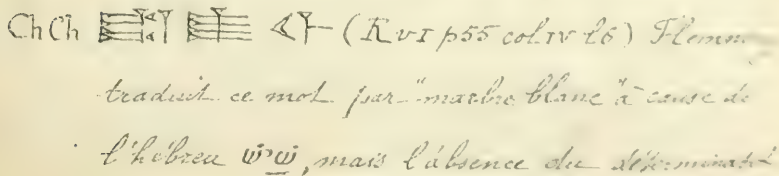 Ch Ch (R v I p55 col IV l6) Flemm
traduit ce mot par "marbre blanc" à cause de
l'hébreu שׁישׁ, mais l'absence du déterminatif